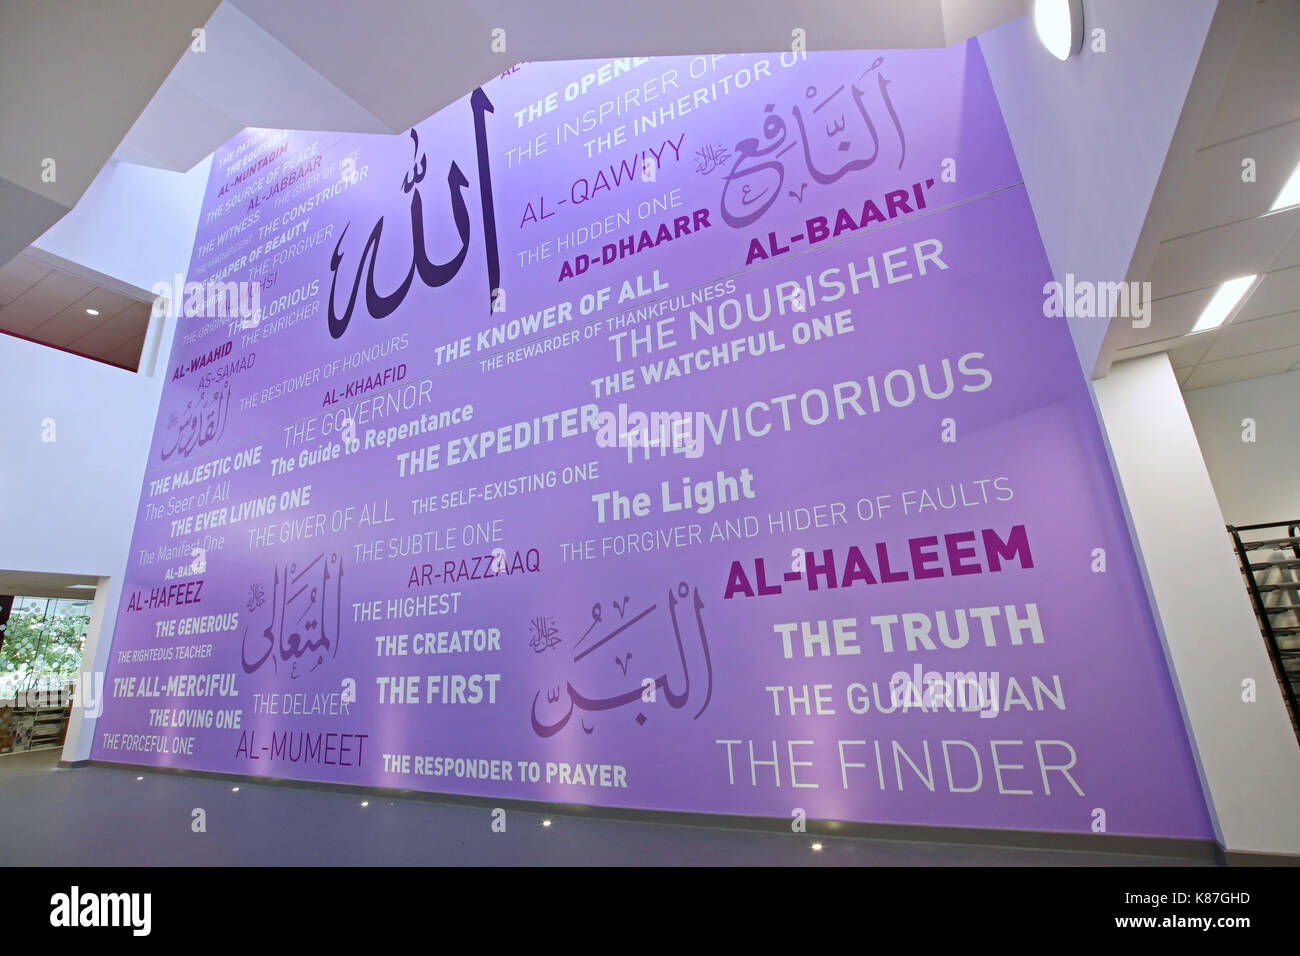 THE OPENE
THE INSPIRER OF
THE INHERITOR OF
الله
النَّافِع
جل جلاله
THE PATIEN
THE EQUITAB
AL-MUNTAQIM
THE SOURCE OF PEACE
AL-JABBAAR
THE GIVER OF LIFE
THE WITNESS
THE CONSTRICTOR
THE MAGNIFICENT
THE SHAPER OF BEAUTY
THE FORGIVER
THE GUIDE
THE ORIGINATOR
THE GLORIOUS
THE ENRICHER
AL-QAWIYY
THE HIDDEN ONE
AD-DHAARR
AL-BAARI'
THE KNOWER OF ALL
THE REWARDER OF THANKFULNESS
THE NOURISHER
THE WATCHFUL ONE
AL-WAAHID
AS-SAMAD
THE BESTOWER OF HONOURS
AL-KHAAFID
القُدُّوسُ
THE GOVERNOR
The Guide to Repentance
THE EXPEDITER
THE VICTORIOUS
THE MAJESTIC ONE
The Seer of All
THE EVER LIVING ONE
THE GIVER OF ALL
THE SELF-EXISTING ONE
The Light
The Manifest One
THE SUBTLE ONE
THE FORGIVER AND HIDER OF FAULTS
AL-BADEE
AL-HAFEEZ
المُتَعَالِي
جل جلاله
AR-RAZZAAQ
AL-HALEEM
THE GENEROUS
THE HIGHEST
THE RIGHTEOUS TEACHER
THE CREATOR
البَرُّ
جل جلاله
THE TRUTH
THE ALL-MERCIFUL
THE DELAYER
THE FIRST
THE GUARDIAN
THE LOVING ONE
THE FORCEFUL ONE
AL-MUMEET
THE RESPONDER TO PRAYER
THE FINDER
alamy
Image ID: K87GHD
www.alamy.com